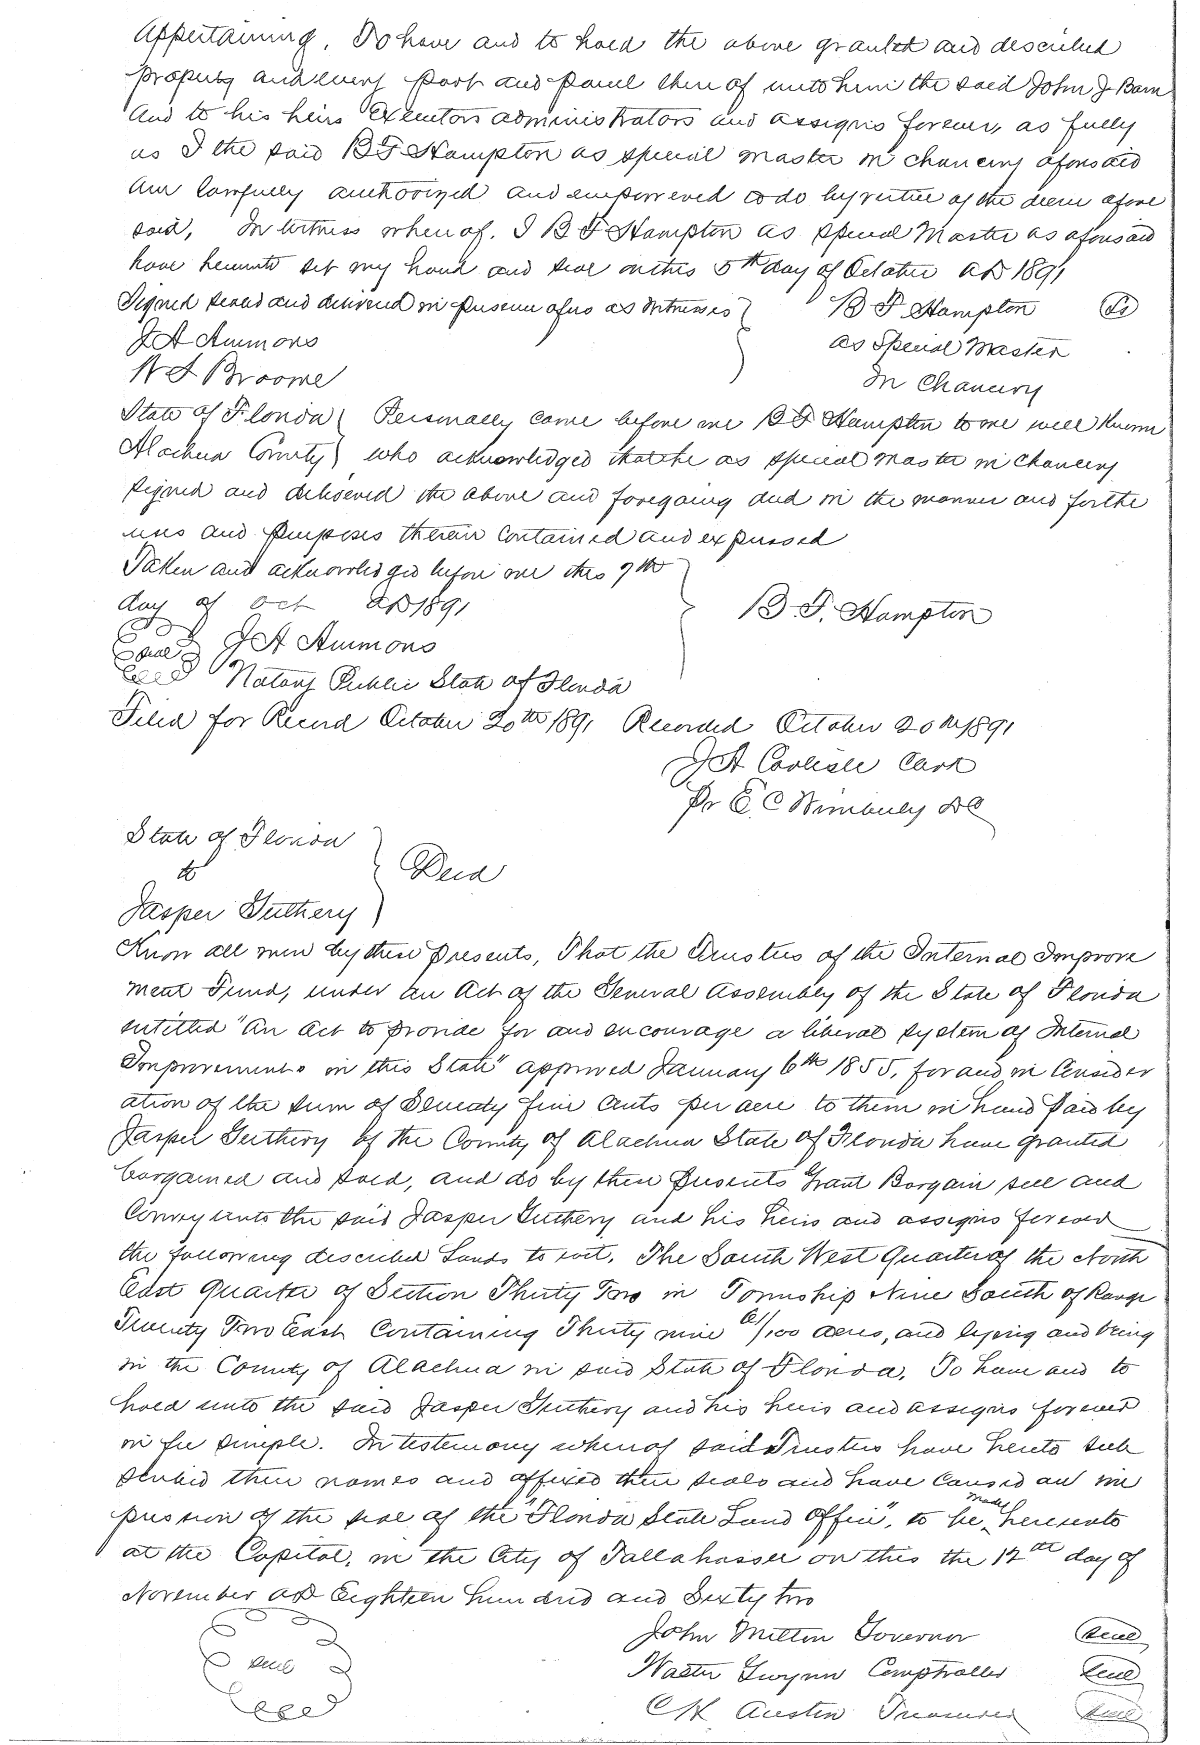 Appertaining, To have and to hold the above granted and described
property and every part and parcel there of unto him the said John J Barr
And to his heirs Executors administrators and assigns forever, as fully
as I the said B F Hampton as special master in chancery aforesaid
Am lawfully authorized and empowered to do by virtue of the decree afore
said, In witness where of, I B F Hampton as special Master as aforesaid
have hereunto set my hand and seal on this 5th day of October AD 1891
Signed sealed and delivered in presence of us as Witnesses } B F Hampton (LS)
J A Ammons as Special Master
W S Broome In Chancery
State of Florida } Personally came before me B F Hampton to me well known
Alachua County } who acknowledged that he as special master in chancery
signed and delivered the above and foregoing deed in the manner and for the
uses and purposes therein contained and expressed
Taken and acknowledged before me this 7th
day of Oct AD 1891 B. F. Hampton
Seal J A Ammons
Notary Public State of Florida
Filed for Record October 20th 1891 Recorded October 20th 1891
J A Carlisle Clerk
Pr E. C Wimberly DC
State of Florida
to } Deed
Jasper Guthery
Know all men by these Presents, That the Trustees of the Internal Improve
ment Fund, under an Act of the General Assembly of the State of Florida
entitled "An Act to provide for and encourage a liberal system of Internal
Improvements in this State" approved January 6th 1855, for and in Consider
ation of the sum of Seventy five Cents per acre to them in hand Paid by
Jasper Guthery of the County of Alachua State of Florida have granted
bargained and sold, and do by these Presents Grant Bargain sell and
Convey unto the said Jasper Guthery and his heirs and assigns forever
the following described Lands to wit. The South West Quarter of the North
East Quarter of Section Thirty Two in Township Nine South of Range
Twenty Two East Containing Thirty nine /100 acres, and lying and being
in the County of Alachua in said State of Florida. To have and to
hold unto the said Jasper Guthery and his heirs and assigns forever
in fee simple. In testimony where of said Trustees have hereto sub
scribed their names and affixed their seals and have caused an im
pression of the seal of the "Florida State Land Office", to be made hereunto
at the Capitol, in the City of Tallahassee on this the 12th day of
November AD Eighteen hundred and Sixty two
John Milton Governor seal
seal Walter Gwynn Comptroller seal
C H Austin Treasurer seal